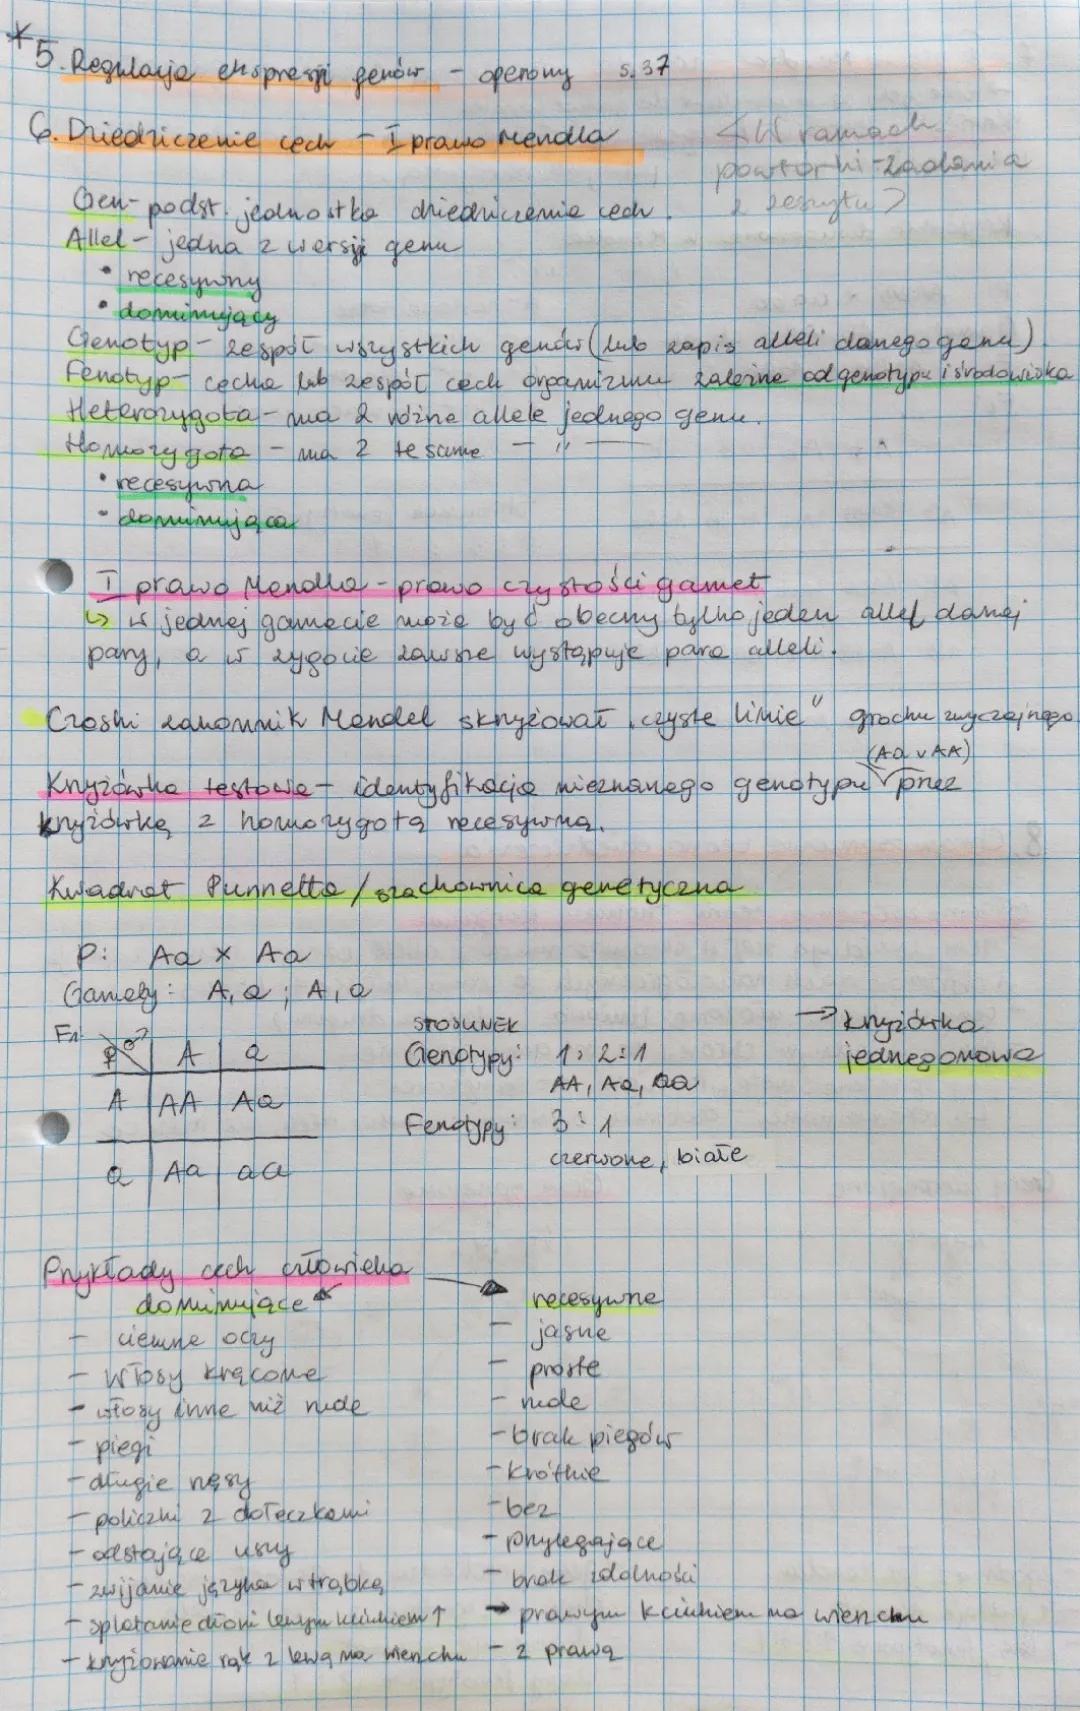 * 5. Regulacja ekspresji genów - operony s. 37
6. Dziedziczenie cech - I prawo Mendla
<W ramach
powtórki - zadania
z zeszytu>
Gen - podst. jednostka dziedziczenia cech.
Allel - jedna z wersji genu
• recesywny
• dominujący
Genotyp - zespół wszystkich genów (lub zapis alleli danego genu)
Fenotyp - cecha lub zespół cech organizmu zależne od genotypu i środowiska
Heterozygota - ma 2 różne allele jednego genu.
Homozygota - ma 2 te same — " —
• recesywna
• dominująca
I prawo Mendla - prawo czystości gamet
↳ w jednej gamecie może być obecny tylko jeden allel danej
pary, a w zygocie zawsze występuje para alleli.
Czeski zakonnik Mendel skrzyżował „czyste linie" grochu zwyczajnego
(Aa v AA)
Krzyżówka testowa - identyfikacja nieznanego genotypu przez
krzyżówkę z homozygotą recesywną.
Kwadrat Punnetta / szachownica genetyczna
P: Aa x Aa
Gamety: A, a ; A, a
F1:
♀ ♂ A a
A AA Aa
a Aa aa
STOSUNEK
Genotypy: 1 : 2 : 1
AA, Aa, aa
Fenotypy: 3 : 1
czerwone, białe
→ krzyżówka
jednegonowa
Przykłady cech człowieka
dominujące
- ciemne oczy
- włosy kręcone
- włosy inne niż rude
- piegi
- długie rzęsy
- policzki z dołeczkami
- odstające uszy
- zwijanie języka w trąbkę
- splatanie dłoni lewym kciukiem ↑
- krzyżowanie rąk z lewą na wierzchu
recesywne
- jasne
- proste
- rude
- brak piegów
- krótkie
- bez
- przylegające
- brak zdolności
→ prawym kciukiem na wierzchu
- z prawą